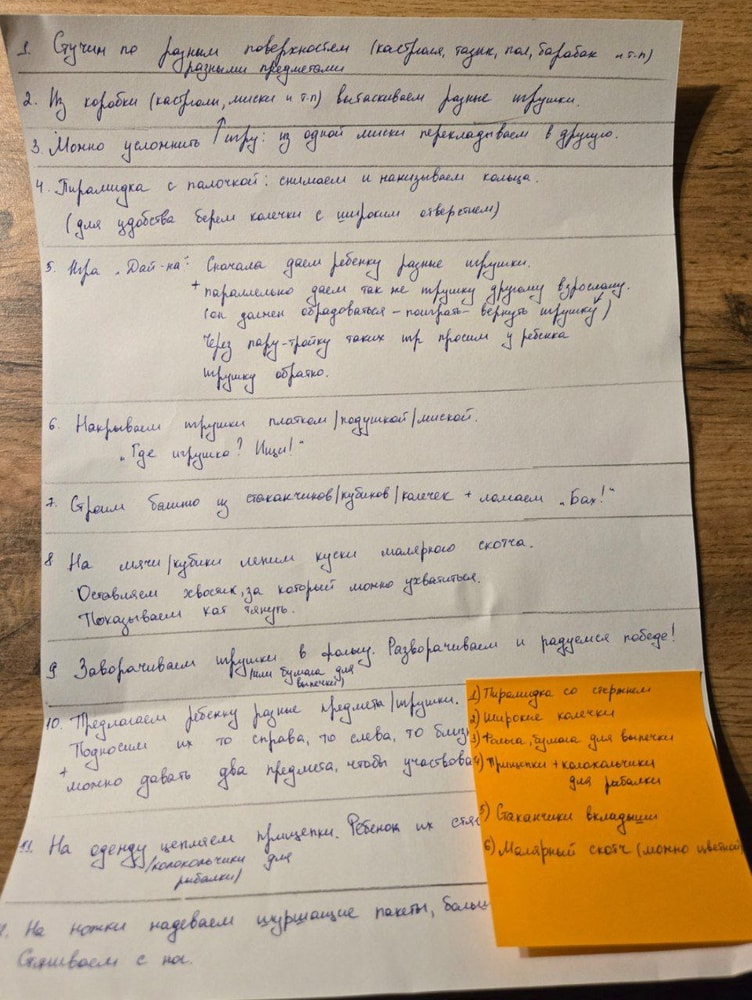 1. Стучим по разным поверхностям (кастрюля, тазик, пол, барабан и т.п)
разными предметами
2. Из коробки (кастрюли, миски и т.п) вытаскиваем разные игрушки.
3. Можно усложнить ↑ игру: из одной миски перекладываем в другую.
4. Пирамидка с палочкой: снимаем и нанизываем кольца.
(для удобства берем колечки с широким отверстием)
5. Игра „Дай-на": Сначала даем ребенку разные игрушки.
+ параллельно даем так же игрушку другому взрослому.
(он должен обрадоваться - поиграть - вернуть игрушку)
Через пару-тройку таких игр просим у ребенка
игрушку обратно.
6. Накрываем игрушки платком/подушкой/миской.
„Где игрушка? Ищи!"
7. Строим башню из стаканчиков/кубиков/колечек + ломаем „Бах!"
8 На мячи/кубики лепим куски малярного скотча.
Оставляем хвостик, за который можно ухватиться.
Показываем как тянуть.
9 Заворачиваем игрушки в фольгу. Разворачиваем и радуемся победе!
(или бумага для
выпечки)
10. Предлагаем ребенку разные предметы/игрушки.
Подносим их то справа, то слева, то
+ можно давать два предмета, чтобы
11. На одежду цепляем прищепки. Ребенок их
/колокольчики для
рыбалки)
На ножки надеваем шуршащие пакеты,
Стягиваем с ног.
1) Пирамидка со стержнем
2) Широкие колечки
3) Фольга, бумага для выпечки
4) Прищепки + колокольчики
для рыбалки
5) Стаканчики вкладыши
6) Малярный скотч (можно